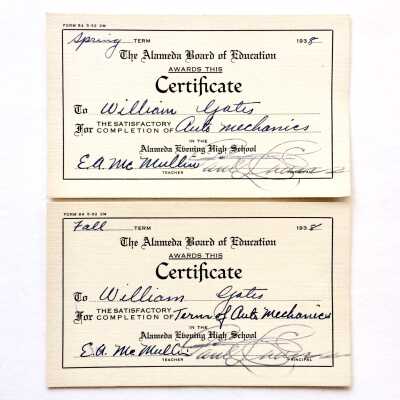 FORM 84 9-32 2M
Spring TERM 1938
The Alameda Board of Education
AWARDS THIS
Certificate
To William Gates
For THE SATISFACTORY COMPLETION OF Auto Mechanics
IN THE
Alameda Evening High School
E.A. McMullin
TEACHER
FORM 84 9-32 2M
Fall TERM 1938
The Alameda Board of Education
AWARDS THIS
Certificate
To William Gates
For THE SATISFACTORY COMPLETION OF Term of Auto Mechanics
IN THE
Alameda Evening High School
E.A. McMullin
TEACHER PRINCIPAL